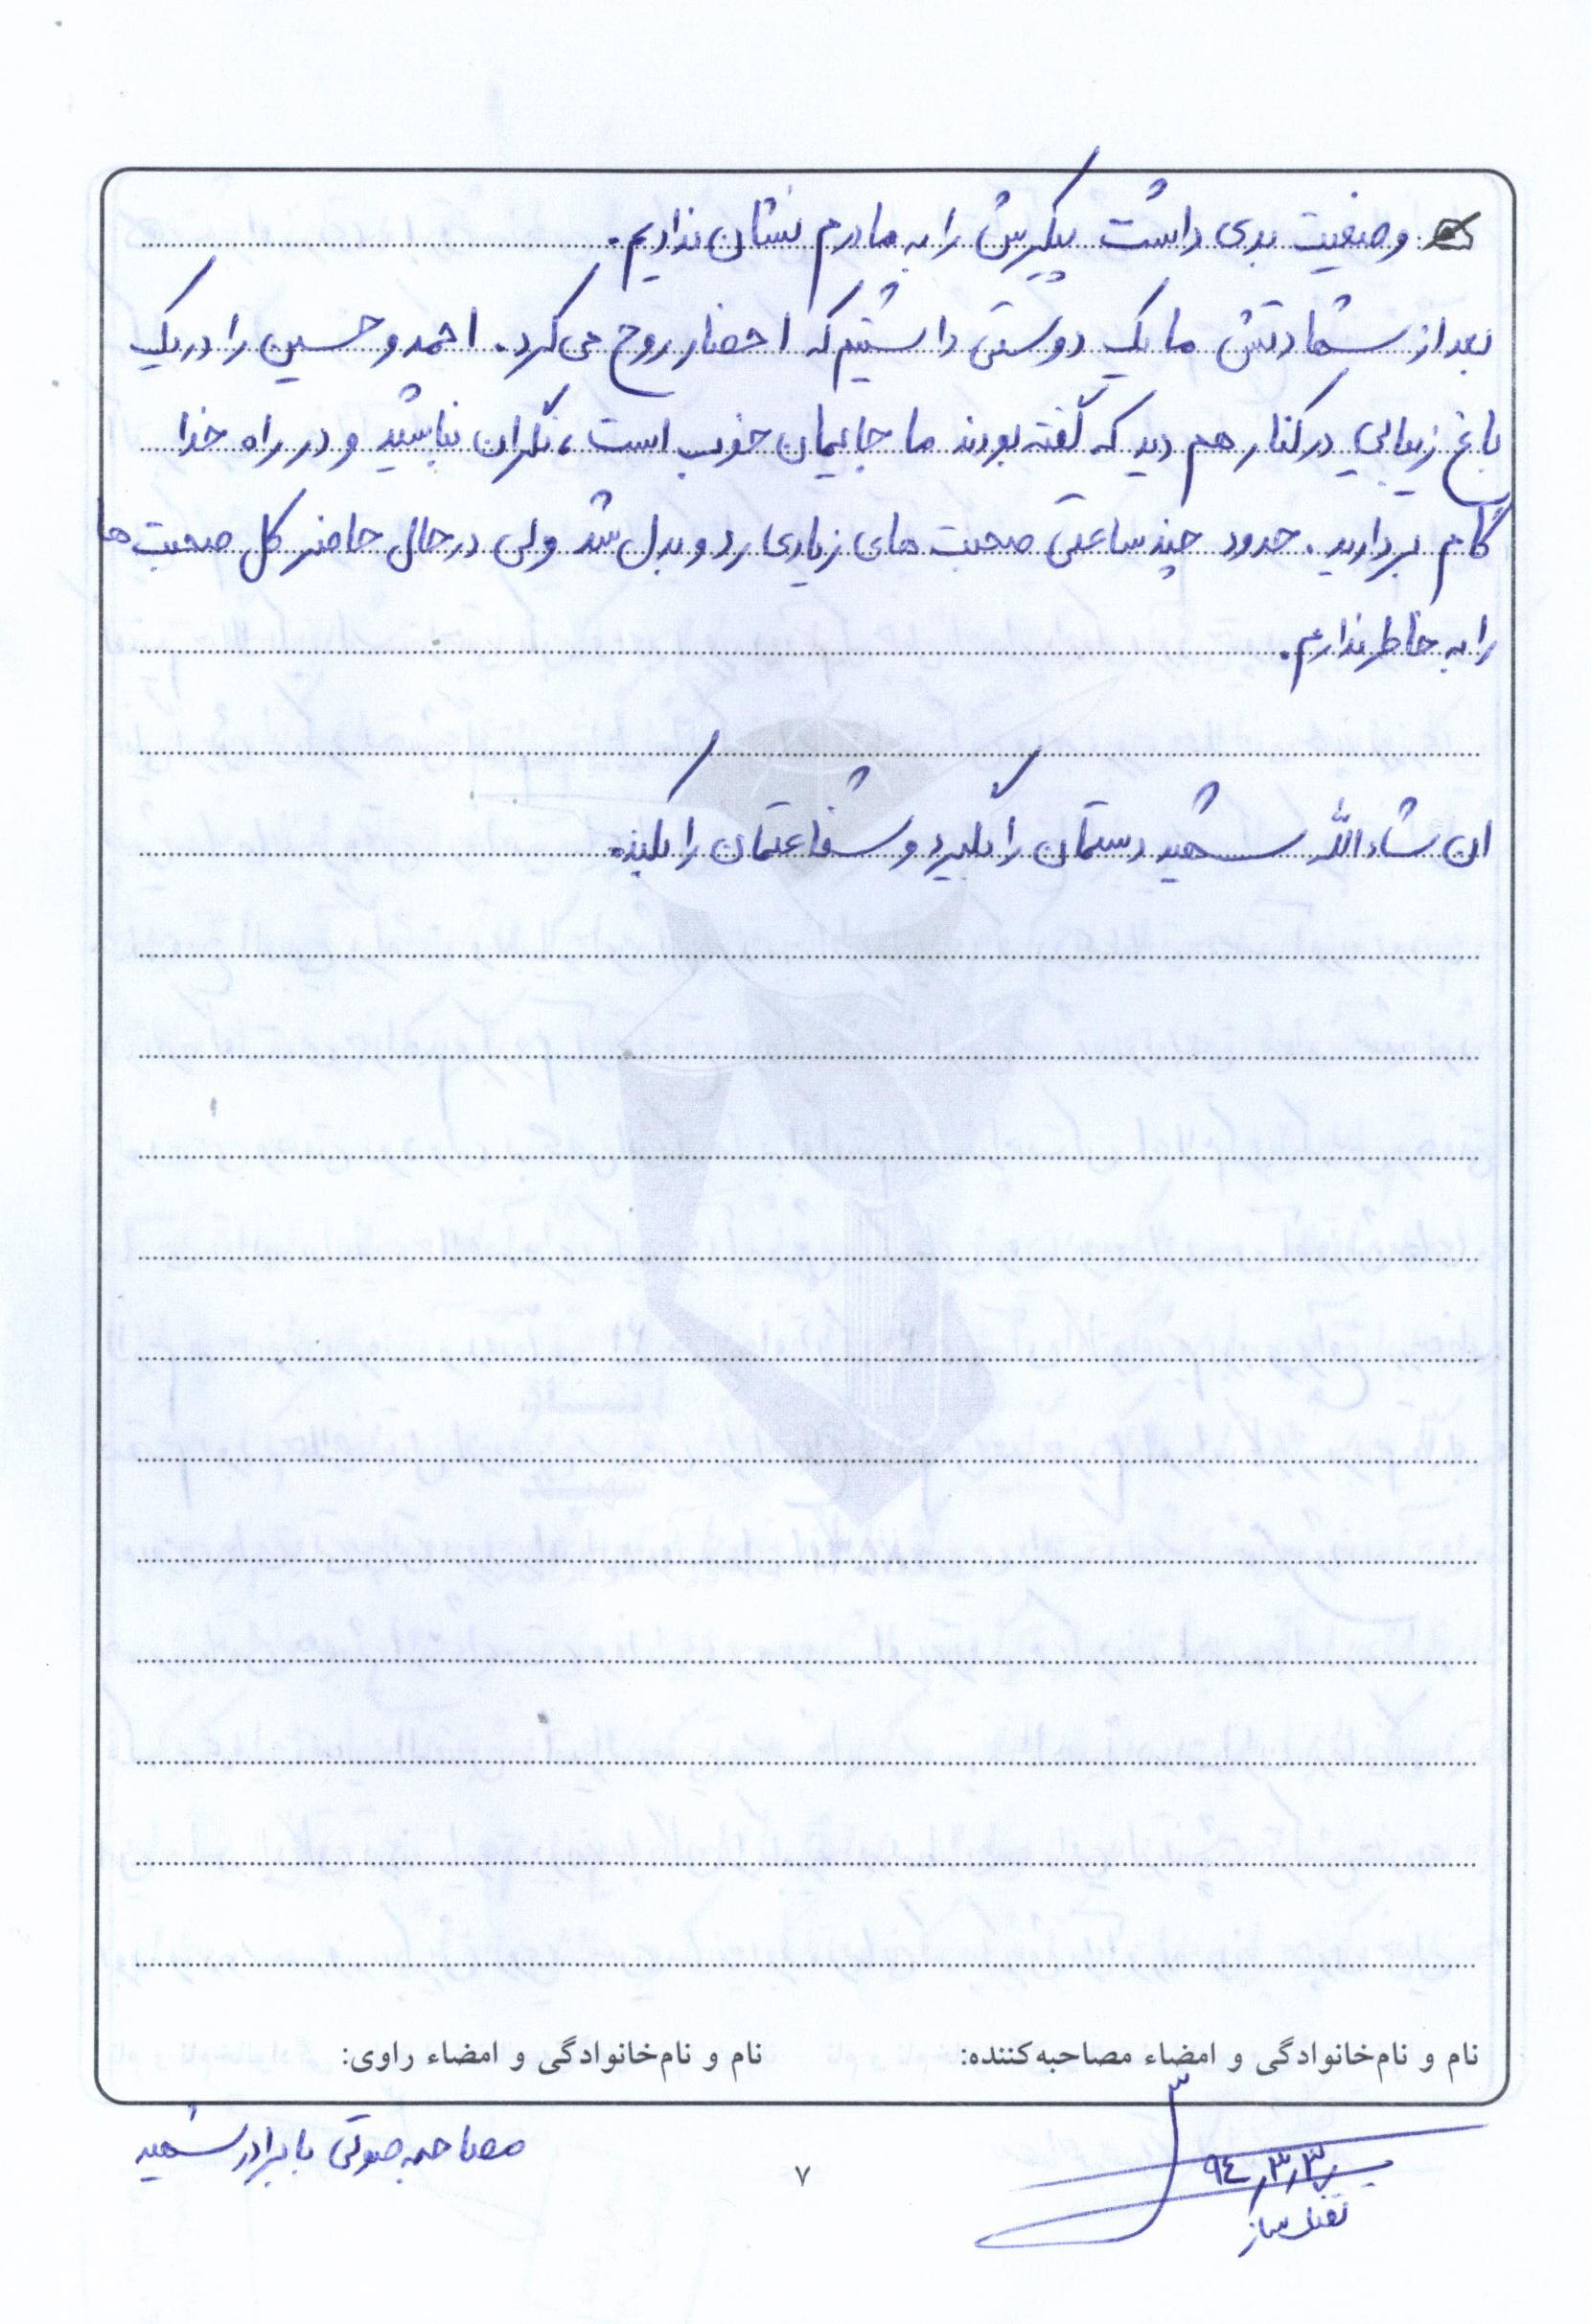 وضعیت بدی داشت پیکرش را به مادرم نشان ندادیم.
بعد از شهادتش ما یک دوستی داشتیم که احضار روح می‌کرد. احمد و حسین را در یک
باغ زیبایی در کنار هم دید که گفته بودند ما جایمان خوب است، نگران نباشید و در راه خدا
گام بردارید. حدود چند ساعتی صحبت های زیادی رد و بدل شد ولی در حال حاضر کل صحبت ها
را به خاطر ندارم.
ان شاء الله شهید دستمان را بگیرد و شفاعتمان را بکند.
نام و نام‌خانوادگی و امضاء مصاحبه‌کننده:
نام و نام‌خانوادگی و امضاء راوی:
مصاحبه صوتی با برادر شهید
۹٤٫۳٫۳
تفنگ ساز
۷